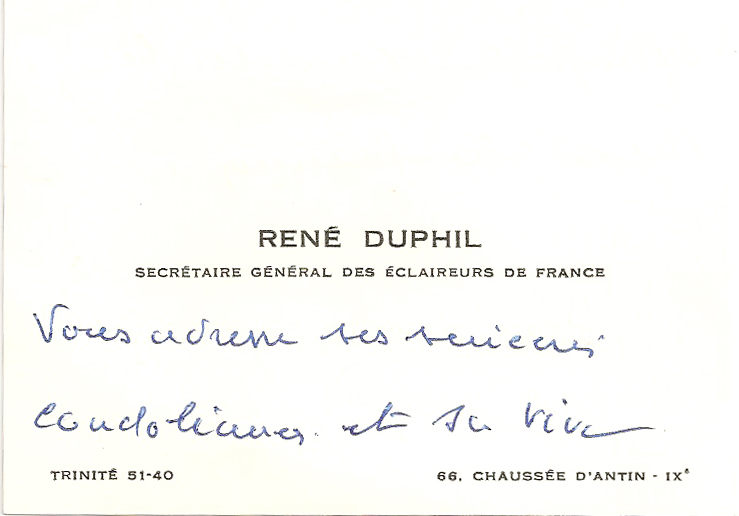 RENÉ DUPHIL
SECRÉTAIRE GÉNÉRAL DES ÉCLAIREURS DE FRANCE
Vous adresse ses sincères
condoléances et sa vive
TRINITÉ 51-40
66, CHAUSSÉE D'ANTIN - IXᵉ